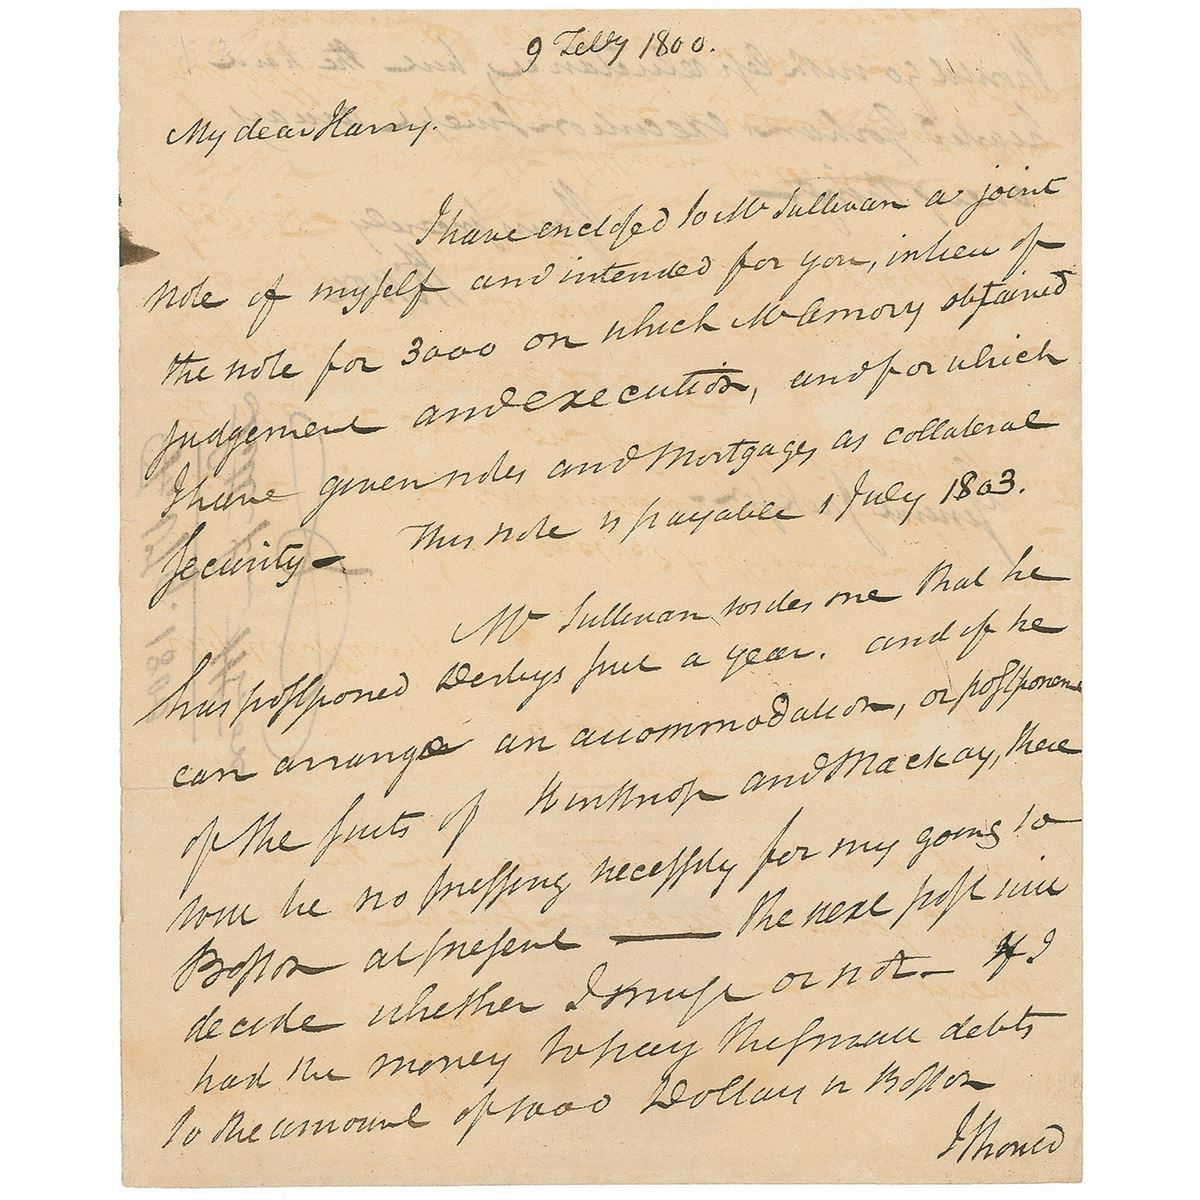 9 Feby 1800.
My dear Harry.
I have enclosed to Mr Sullivan a joint
note of myself and intended for you, in lieu of
the note for 3000 on which Mr Amory obtained
judgement and execution, and for which
I have given notes and Mortgages as collateral
Security— This note is payable 1 July 1803.
Mr Sullivan writes me that he
has postponed Derbys suit a year. and if he
can arrange an accommodation, or postponement
of the suits of Winthrop and Mackay, there
will be no pressing necessity for my going to
Boston at present — the next post will
decide whether I must or not— If I
had the money to pay the small debts
to the amount of 1000 Dollars in Boston
I should